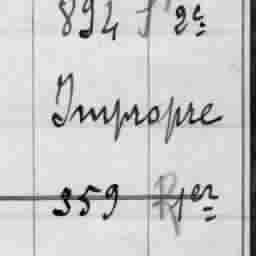 894 f° 2e
Impropre
359 R 1er